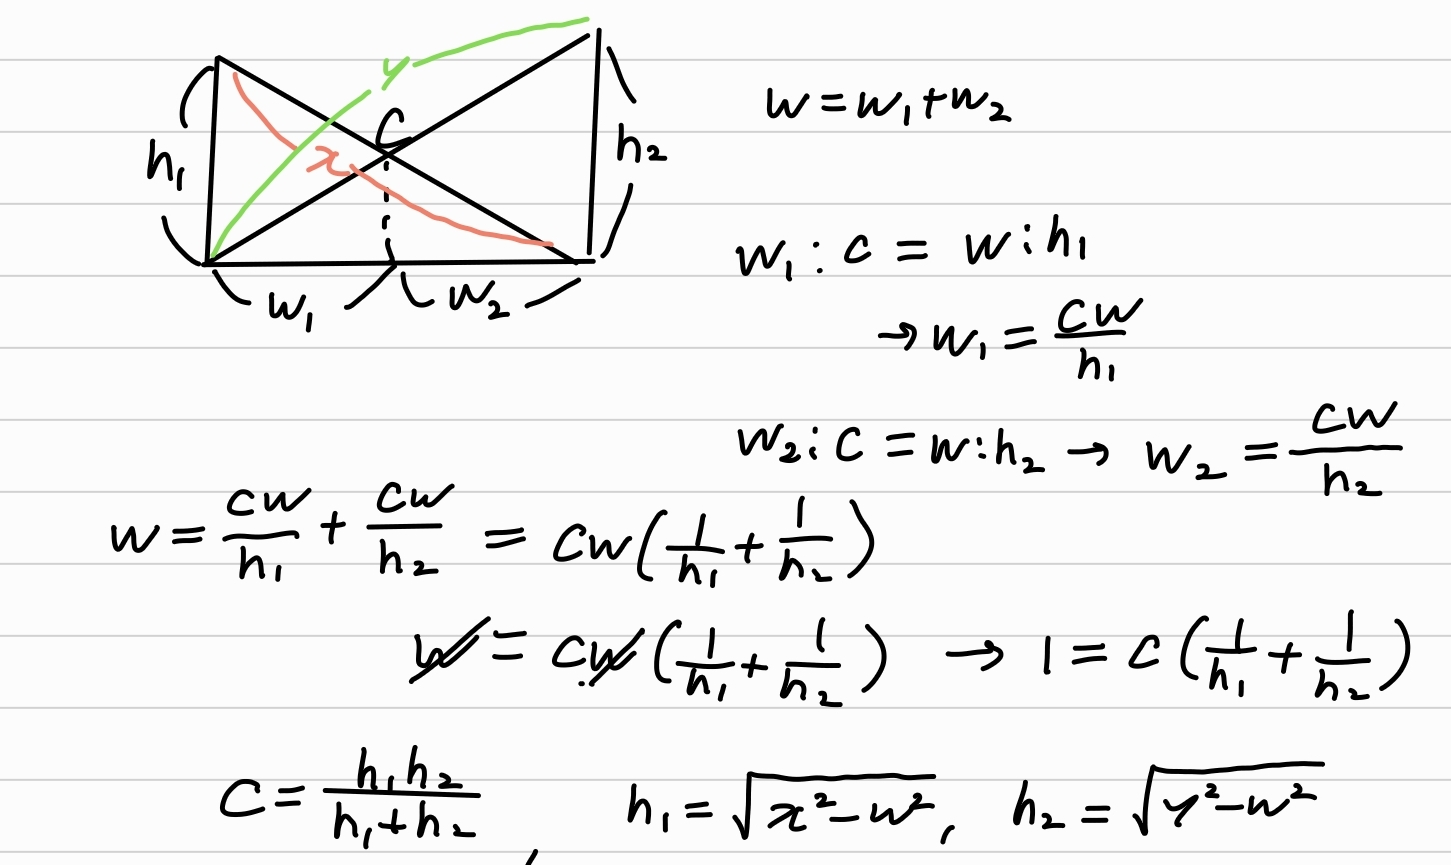 y
C
h₁
x
h₂
w₁
w₂
w = w₁ + w₂
w₁ : c = w : h₁
→ w₁ = cw/h₁
w₂ : c = w : h₂ → w₂ = cw/h₂
w = cw/h₁ + cw/h₂ = cw(1/h₁ + 1/h₂)
w = cw(1/h₁ + 1/h₂) → 1 = c(1/h₁ + 1/h₂)
c = h₁h₂/(h₁+h₂), h₁ = √(x²-w²), h₂ = √(y²-w²)